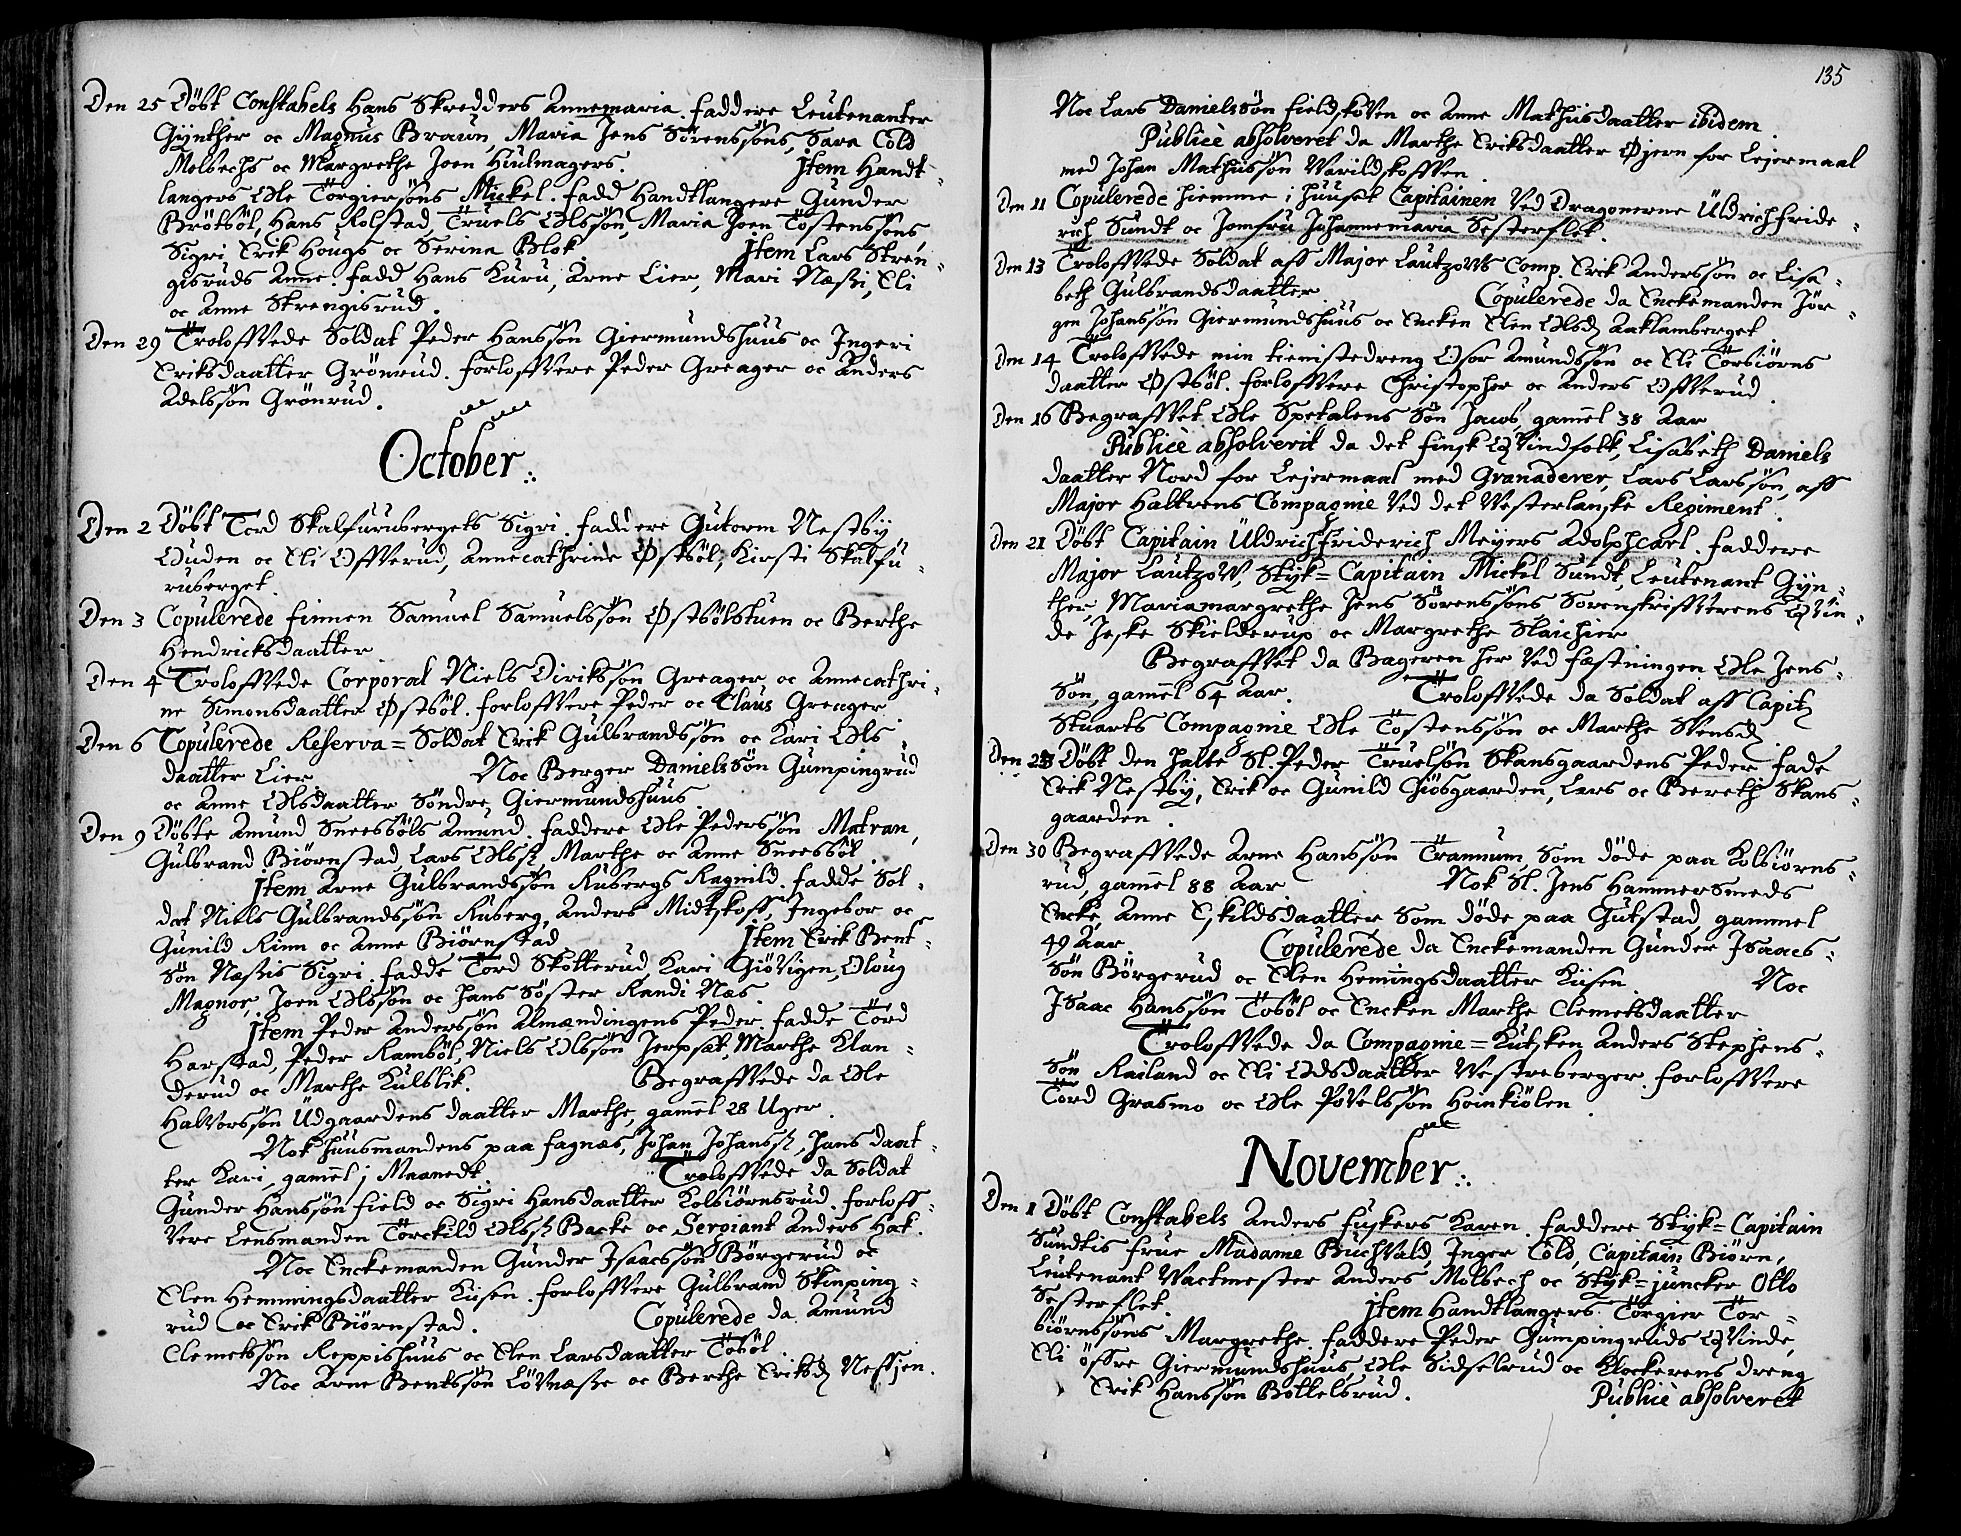 Den 25 Döbt Constabels Hans Skredders Annemaria. faddere Leutenanter
Gÿnther oc Magnus Braun, Maria Jens Sörenssöns, Sara Cold
Molbechs oc Margrethe Joen Hiulmagers. Jtem Handt-
langers Ole Törgiersöns Mickel. fadd Handtlangere Gunder
Brötsöt, Hans Rolstad, Truels Olssön, Maria Joen Töstenssöns
Sigri Erik Hougs oc Serina Blok. Jtem Lars Stren-
gisruds Anne. fadd Hans Kuru, Arne Lier, Mari Næsti, Eli
oc Anne Strengisrud.
Den 29 Troloffvede Soldat Peder Hanssön Giermundshuus oc Ingeri
Eriksdaatter Grönrud. forloffvere Peder Greager oc Anders
Adelssön Grönrud.
October
Den 2 Döbt Tord Skalfurubergets Sigri. faddere Gutorm Nestbÿ
Ouden oc Eli Offverud, Annecathrine Østböl, Kirsti Skalfu-
ruberget.
Den 3 Copulerede finnen Samuel Samuelssön Østbölstuen oc Berthe
Hendricksdaatter
Den 4 Troloffvede Corporal Niels Dirikssön Greager oc Annecathri-
ne Simonsdaatter Østböl. forloffvere Peder oc Claus Greager
Den 6 Copulerede Reserva=Soldat Erik Gulbrandssön oc Kari Ols
daatter Lier Noc Berger Danielssön Gumpingrud
oc Anne Olsdaatter Söndre Giermundshuus
Den 9 Döbte Amund Sneesböls Amund. faddere Ole Pederssön Matran,
Gulbrand Biörnstad, Lars Olss, Marthe oc Anne Sneesböl
Jtem Arne Gulbrandssön Rubergs Ragnild. fadde Sol-
dat Niels Gulbrandssön Ruberg, Anders Midtskoff, Ingebor oc
Gunild Rinn oc Anne Biörnstad Jtem Erik Bent-
sön Næstis Sigri. fadde Tord Skötterud, Kari Giövigen, Oloug
Magnor, Joen Olssön oc hans Söster Randi Næs.
Jtem Peder Anderssön Almændingens Peder. fadde Tord
Harstad, Peder Ramböl, Niels Olssön Jerpset, Marthe Klan-
derud oc Marthe Kulblik. Begraffvede da Ole
Halvorssön Udgaardens daatter Marthe, gamel 28 Uger.
Nok huusmandens paa fagnæs, Johan Johanss, hans daat-
ter Kari, gamel j Maanedt. Troloffvede da Soldat
Gunder Hanssön field oc Sigri Hansdaatter Kolbiörnsrud. forloff-
vere Lensmanden Törckild Olss Backe oc Sergiant Anders Hak.
Noc Enckemanden Gunder Isaacssön Börgerud oc
Elen Hemmingsdaatter Kiisen. forloffvere Gulbrand Skinping-
rud oc Erik Biörnstad. Copulerede da Amund
Clemetssön Reppishuus oc Elen Larsdaatter Toböl.
Noc Arne Bentssön Lövnæsse oc Berthe Eriksd Nessjen.
135
Noc Lars Danielssön fieldskoven oc Anne Mathiisdaatter ibidem
Publicè absolveret da Marthe Eriksdaatter Øjern for Lejermaal
med Johan Mathiissön Varildskoffven.
Den 11 Copulerede hiemme i huuset Capitainen Ved Dragonerne Uldrichfride-
rich Sundt oc Jomfru Johannemaria Sesterflet.
Den 13 Troloffvede Soldat aff Major Lautzows Comp. Erik Anderssön oc Lisa-
beth Gulbrandsdaatter Copulerede da Enckemanden Jör-
gen Johanssön Giermundshuus oc Encken Elen Olsd Aaklamberget
Den 14 Troloffvede min tienistedreng Osor Amundssön oc Eli Törbiörns
daatter Østböl. forloffvere Christopher oc Anders Offverud
Den 16 Begraffvet Ole Spetalens Sön Jacob, gamel 38 Aar
Publicè absolverit da det finsk Qvindfolk, Lisabeth Daniels
daatter Nord for Lejermaal med Granaderer, Lars Larssön, aff
Major Haltvens Compagnie Ved det Vesterlanske Regiment.
Den 21 Döbt Capitain Uldrichfriderich Meyers Adolphcarl. faddere
Major Lautzow, Stÿk=Capitain Mickel Sundt, Leutenant Gÿn-
ther, Mariamargrethe Jens Sörenssöns Sorenskriffverens Qvin-
de, Jeske Skielderup oc Margrethe Slaichier
Begraffvet da Bageren her Ved fæstningen Ole Jens-
Sön, gamel 64 Aar. Troloffvede da Soldat aff Capit
Stuarts Compagnie Ole Töstenssön oc Marthe Svensd
Den 28 Döbt den halte Sl. Peder Truelsön Skansgaardens Peder. fade
Erik Nestbÿ, Erik oc Gunild Giösgaarden, Lars oc Bereth Skans-
gaarden.
Den 30 Begraffvede Arne Hanssön Trannum, Som döde paa Kolbiörns-
rud, gamel 88 Aar Nok Sl. Jens Hammersmeds
Encke, Anne Eskildsdaatter Som döde paa Gutstad, gammel
49 Aar Copulerede da Enckemanden Gunder Isaacs-
Sön Börgerud oc Elen Hemingsdaatter Kiisen. Noc
Isaac Hanssön Toböl oc Encken Marthe Clemetsdaatter
Troloffvede da Compagnie=Kutsken Anders Stephens-
Sön Railand oc Eli Odsdaatter Vestreberger. forloffvere
Tord Grasmo oc Ole Povelssön Hoinkiölen.
November
Den 1 Döbt Constabels Anders fuskers Karen. faddere Stÿk=Capitain
Sundtis frue Madame Buchvald, Inger Cold, Capitain Biörn,
Leutenant Vactmester Anders Molbech oc Stÿk=juncker Otto
Sesterflet. Jtem Handtlangers Törgier Tör-
biörnsöns Margrethe. faddere Peder Gumpingruds Qvinde,
Eli öffre Giermundshuus, Ole Sidselrud oc Klockerens dreng
Erik Hanssön Bottelsrud. Publicè absolveret